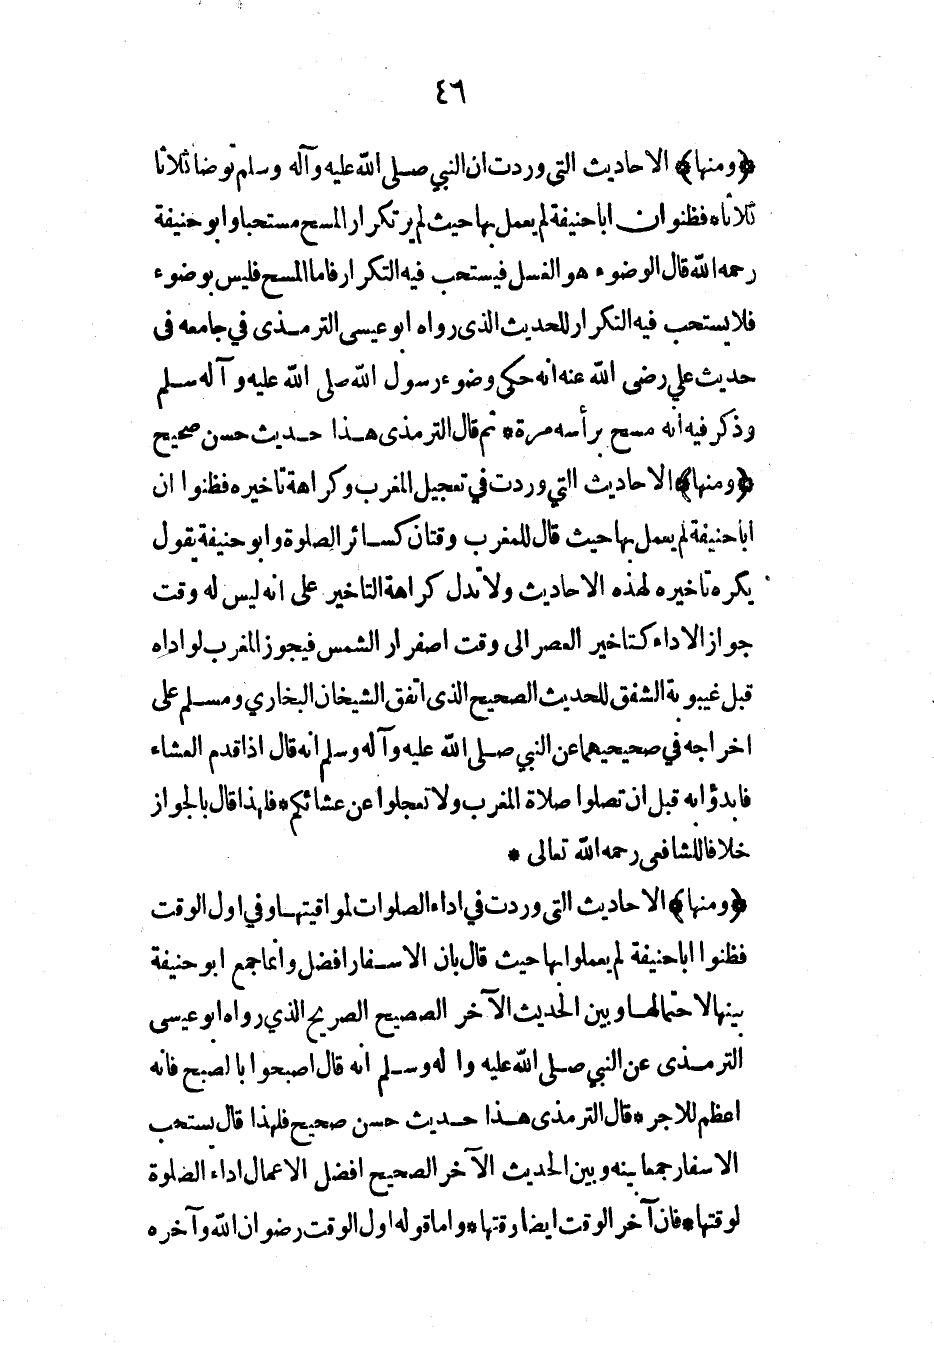 ٤٦
﴿ومنها﴾ الاحاديث التى وردت ان النبي صلى الله عليه وآله وسلم توضا ثلاثا
ثلاثا* فظنوا ان ابا حنيفة لم يعمل بها حيث لم ير تكرار المسح مستحبا وابو حنيفة
رحمه الله قال الوضوء هو الغسل فيستحب فيه التكرار فاما المسح فليس بوضوء
فلا يستحب فيه التكرار للحديث الذى رواه ابو عيسى الترمذى في جامعه فى
حديث علي رضى الله عنه انه حكى وضوء رسول الله صلى الله عليه وآله سلم
وذكر فيه انه مسح برأسه مرة* ثم قال الترمذى هذا حديث حسن صحيح
﴿ومنها﴾ الاحاديث التي وردت في تعجيل المغرب وكراهة تاخيره فظنوا ان
ابا حنيفة لم يعمل بها حيث قال للمغرب وقتان كسائر الصلوة وابو حنيفة يقول
يكره تاخيره لهذه الاحاديث ولا تدل كراهة التاخير على انه ليس له وقت
جواز الاداء كتاخير العصر الى وقت اصفرار الشمس فيجوز المغرب لو اداه
قبل غيبوبة الشفق للحديث الصحيح الذى اتفق الشيخان البخاري ومسلم على
اخراجه في صحيحيهما عن النبي صلى الله عليه وآله وسلم انه قال اذا قدم العشاء
فابدؤا به قبل ان تصلوا صلاة المغرب ولا تعجلوا عن عشائكم* فلهذا قال بالجواز
خلافا للشافعى رحمه الله تعالى *
﴿ومنها﴾ الاحاديث التى وردت في اداء الصلوات لمواقيتها وفي اول الوقت
فظنوا ابا حنيفة لم يعملوا بها حيث قال بان الاسفار افضل وانما جمع ابو حنيفة
بينها لاحتمالها وبين الحديث الآخر الصصيح الصريح الذي رواه ابو عيسى
الترمذى عن النبي صلى الله عليه واله وسلم انه قال اصبحوا بالصبح فانه
اعظم للاجر* قال الترمذى هذا حديث حسن صحيح فلهذا قال يستحب
الاسفار جمعا بينه وبين الحديث الآخر الصحيح افضل الاعمال اداء الصلوة
لوقتها* فان آخر الوقت ايضا وقتها* واما قوله اول الوقت رضوان الله وآخره